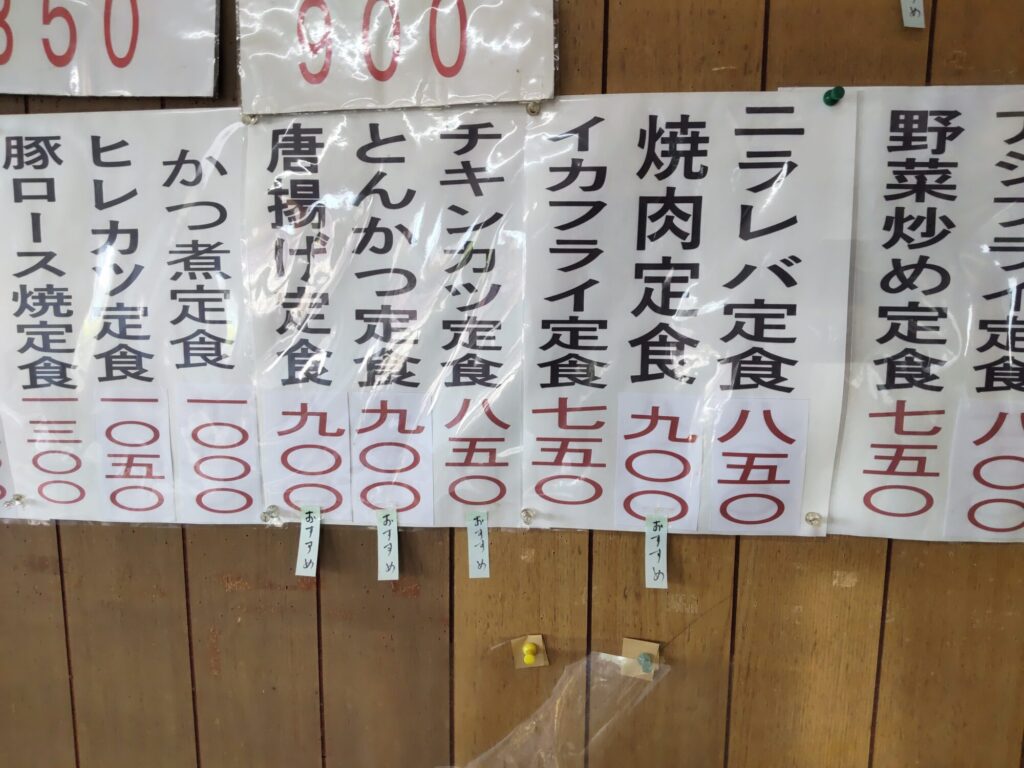 350
900
アジフライ定食 八〇〇
野菜炒め定食 七五〇
ニラレバ定食 八五〇
焼肉定食 九〇〇
イカフライ定食 七五〇
チキンカツ定食 八五〇
とんかつ定食 九〇〇
唐揚げ定食 九〇〇
かつ煮定食 一〇〇〇
ヒレカツ定食 一〇五〇
豚ロース焼定食 一三〇〇
おすすめ
おすすめ
おすすめ
おすすめ